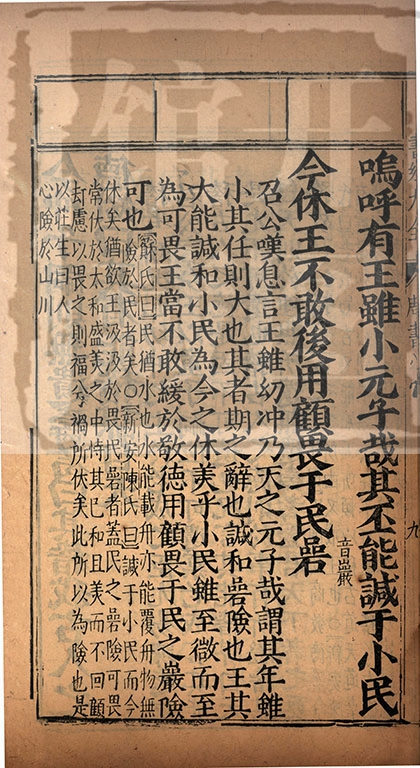 嗚呼有王雖小元子哉其丕能諴于小民
今休王不敢後用顧畏于民碞
音巖
召公嘆息言王雖幼沖乃天之元子哉謂其年雖
小其任則大也其者期之辭也諴和碞險也王其
大能諴和小民為今之休美乎小民雖至微而至
為可畏王當不敢緩於敬德用顧畏于民之巖險
可也蘇氏曰民猶水也水能載舟亦能覆舟物無
險於民者矣○新安陳氏曰諴于小民而今
休矣猶欲王汲汲於畏民碞者蓋民之碞險可畏
常伏於太和盛美之中恃其已和且美而不回顧
却慮以畏之則福兮禍所伏矣此所以為險也是
以莊生曰人
心險於山川
九